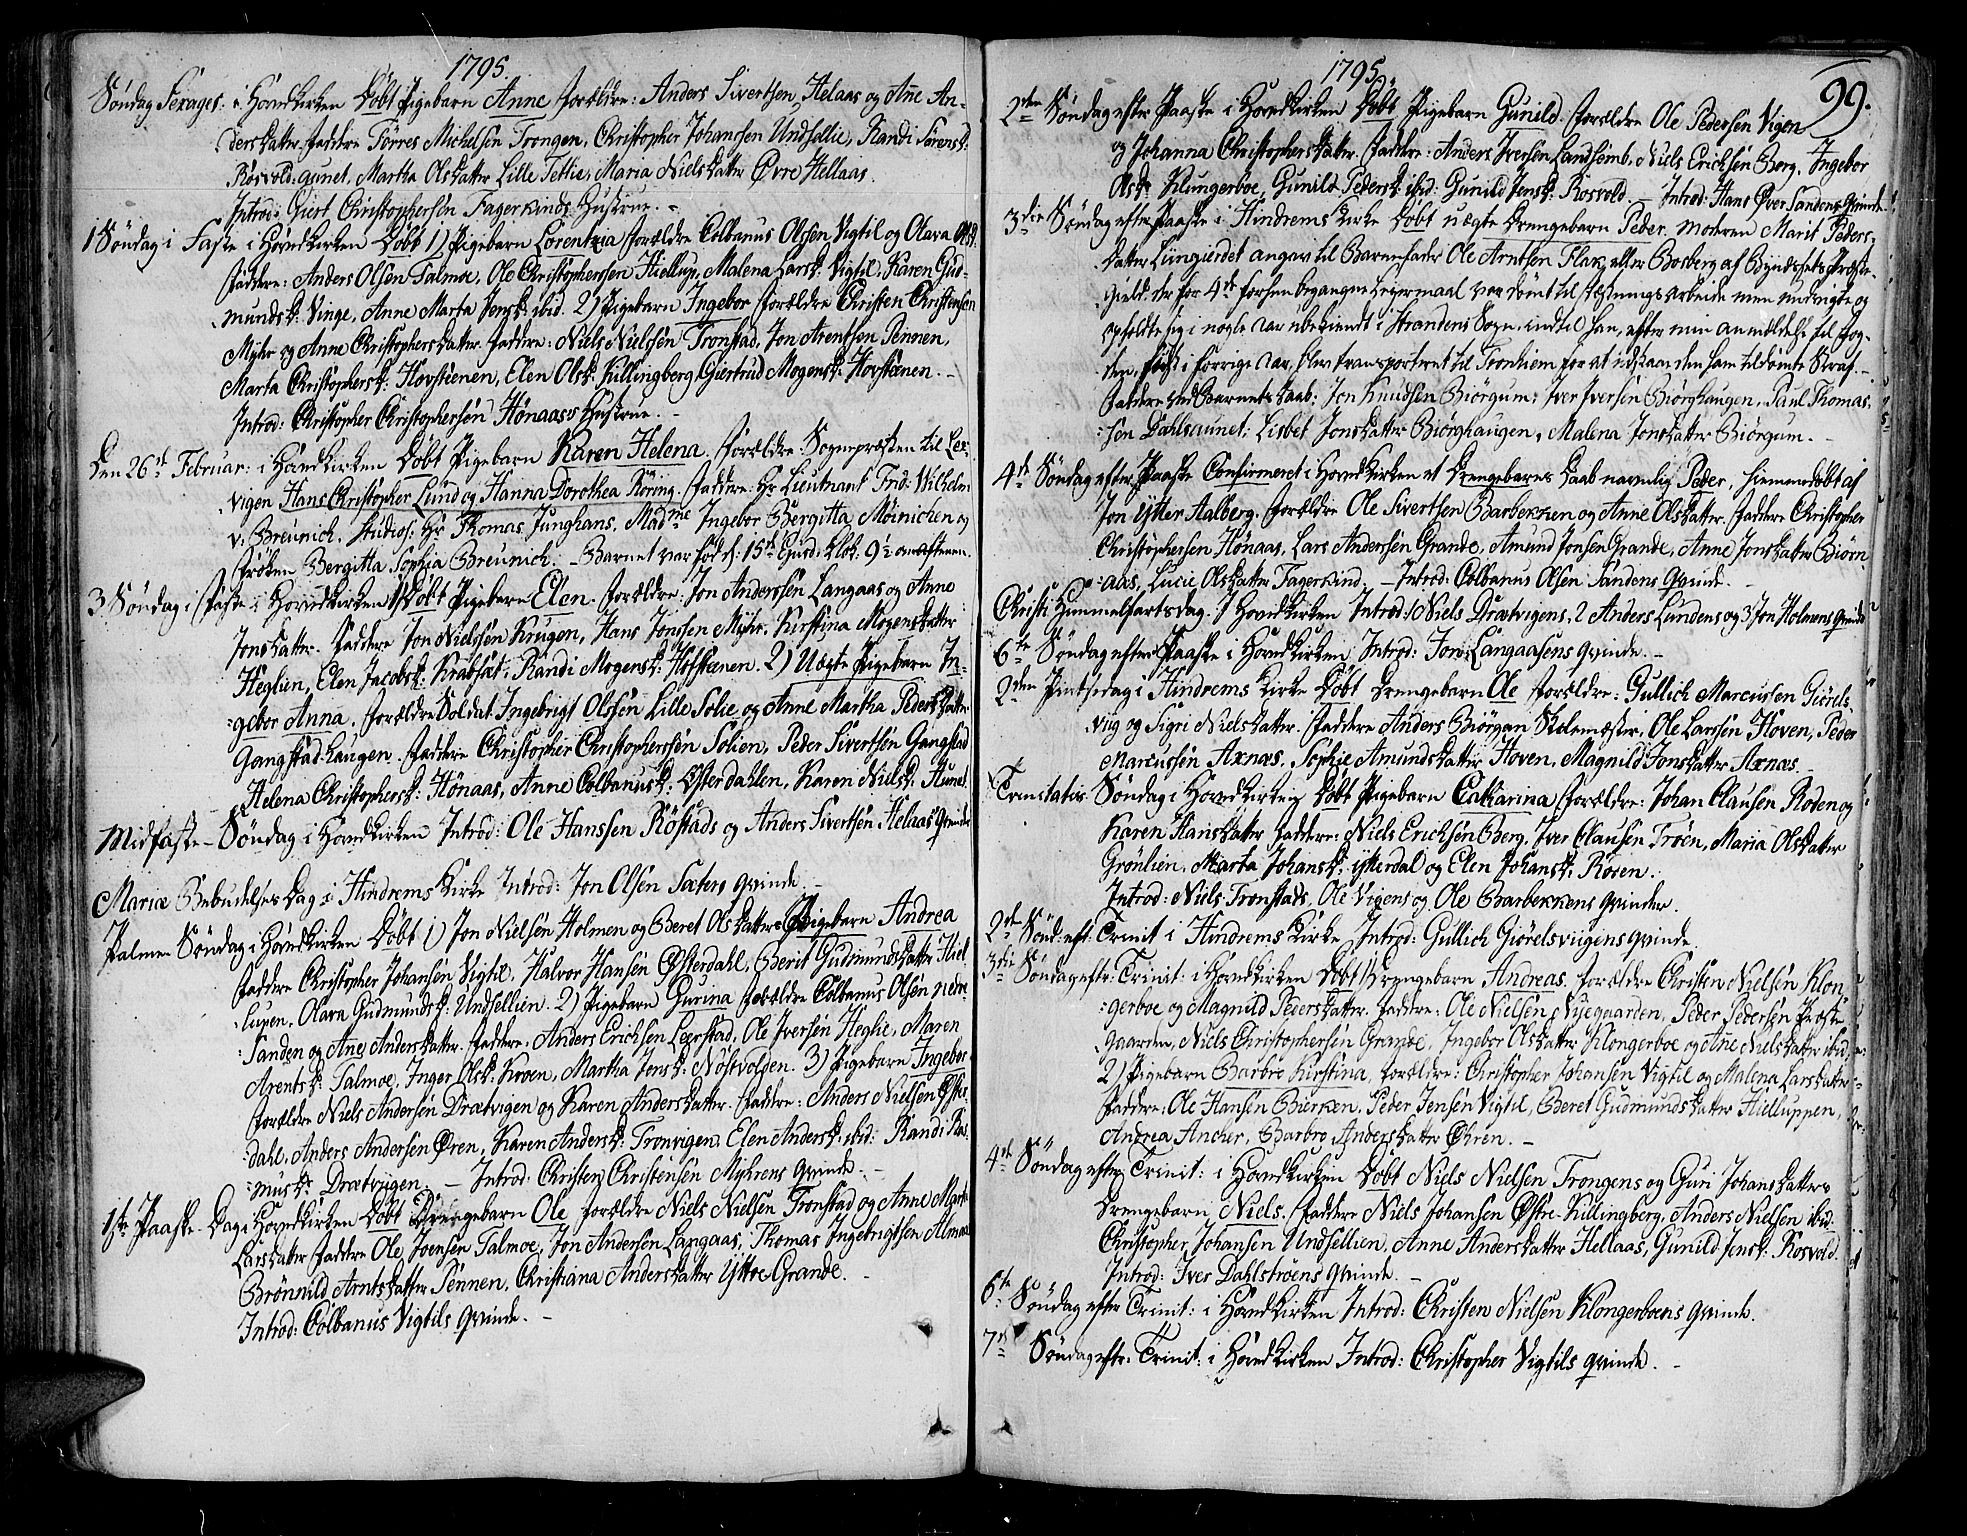 1795.
Søndag Sexages. i Hovedkirken Døbt Pigebarn Anne Forældre: Anders Sivertsen Helaas og Ane An-
dersdatter. Faddere Tørres Michelsen Trongen, Christopher Johansen Undsellie, Randi Sørensd:
Rosvold: aunet, Martha Olsdatter Lille Tettlie, Maria Nielsdatter Øvre Hellaas.
Introd: Giert Christophersen Fagerkinds Hustrue. -
1 Søndag i Faste i Hovedkirken Døbt 1) Pigebarn Lorentzia Forældre Colbanus Olsen Vigtil og Olava Olsd.
Faddere: Anders Olsen Talmoe, Ole Christophersen Hiellup, Malena Larsd: Vigtil, Karen Gud-
mundsd: Vinge, Anne Marta Jensd: ibid. 2) Pigebarn Ingebor Forældre Christen Christensen
Myhr og Anne Christophersdatter. Faddere: Niels Nielsen Tronstad, Jon Arentsen Pennen,
Marta Christophersd: Hovsteenen, Elen Olsd: Killingberg, Giertrud Mogensd: Hovsteenen. -
Introd: Christopher Christophersen Hønaass Hustrue. -
Den 26d Februar: i Hovedkirken Døbt Pigebarn Karen Helena. Forældre: Sognepræsten til Lex-
vigen Hans Christopher Lund og Hanna Dorothea Röring. Faddere: Hr Lieutnant Frid: Wilhelm
v. Breunich. Studios: Hr Thomas Junghans, Madme Ingebor Bergitta Möinichen og
Frøken Bergitta Sophia Breunich. - Barnet var fød d: 15d Ejusd: Klok: 9½ om aftenen.
3 Søndag i Faste i Hovedkirken 1) Døbt Pigebarn Elen. Forældre: Jon Anderssen Langaas og Anne
Jonsdatter. Faddere Jon Nielssen Krugen, Hans Jonssen Myhr, Kirstina Mogensdatter
Heglien, Elen Jacobsd: Krabsæt, Randi Mogensd: Hofsteenen. 2) Uægte Pigebarn In-
gebor Anna. Forældre Soldat Ingebrigt Olsen Lille Solie og Anne Martha Pedersdatter
Gangstad haugen. Faddere Christopher Christophersen Solien, Peder Sivertsen Gangstad
Helena Christophersd: Hønaas, Anne Colbanusd: Østerdahlen, Karen Nielsd: Aunet.
Midfaste-Søndag i Hovedkirken Introd: Ole Hanssen Røstads og Anders Sivertsen Helaas Qvinder
Mariæ Bebudelses Dag i Hindrems Kirke Introd: Jon Olsen Sæters Qvinde. -
Palme Søndag i Hovedkirken Døbt 1) Jon Nielsen Holmen og Beret Olsdatters Pigebarn Andrea
Faddere Christopher Johansen Vigtil, Halvor Hansen Østerdahl, Berit Gudmundsdatter Hiel-
lupen, Olava Gudmundsd: Undsellien. 2) Pigebarn Gurina Forældre Colbanus Olsen nedre
Sanden og Ane Andersdatter. Faddere: Anders Erichsen Leerstad, Ole Iversen Heglie, Maren
Arentsd: Talmoe, Inger Olsd: Kroen, Martha Jensd: Nøstvolden. 3) Pigebarn Ingebor.
Forældre Niels Andersen Drætvigen og Karen Andersdatter. Faddere: Anders Nielsen Øster-
dahl, Anders Andersen Øren, Karen Andersd: Tronvigen, Elen Andersd: ibid: Randi Ras-
musd: Drætvigen. - Introd: Christen Christensen Myhrens Qvinde. -
1ste Paaske-Dag i Hovedkirken Døbt Drengebarn Ole Forældre Niels Nielsen Tronstad og Anne Marta
Larsdatter Faddere Ole Joensen Talmoe, Jon Andersen Langaas, Thomas Ingebrigtsen Almaas
Brønnild Arntsdatter Pennen, Christiana Andersdatter Yttre Grande. -
Introd: Colbanus Vigtils Qvinde. -
1795.
99.
2den Søndag efter Paaske i Hovedkirken Døbt Pigebarn Gunild. Forældre Ole Pedersen Vigen
og Johanna Christophersdatter. Faddere: Anders Iversen Landsemb, Niels Erichsen Berg, Ingebor
Olsd: Klungerboe, Gunild Pedersd: ibid: Gunild Jensd: Rosvold. - Introd: Hans Øver Sandens Qvinde
3die Søndag efter Paaske i Hindrems Kirke Døbt uægte Drengebarn Peder. Moderen Marit Peders-
datter Liungierdet angav til Barnefader Ole Arntsen Flak, eller Bosberg af Byndssets Præste-
gield. der for 4de forhen begangne Leyermaal var dømt til Fæstnings Arbeide men undvigte og
opholdte sig i nogle aar ubekiendt i Strandens Sogn, indtil han, efter min anmeldelse til Fog-
den, sidst i forrige aar, blev transporteret til Tronhiem for at udstaae den ham tildømte Straf. -
Faddere ved Barnets Daab: Jon Knudsen Biörgum, Iver Iversen Biörghaugen, Paul Thomas-
sen Dahlsaunet, Lisbet Jonsdatter Biörghaugen, Malena Jonsdatter Biörgum. -
4de Søndag efter Paaske Confirmeret i Hovedkirken et Drengebarns Daab navnlig Peder, hiemmedøbt af
Jon Ytter Aalberg. Forældre Ole Sivertsen Barbekken og Anne Olsdatter. Faddere Christopher
Christophersen Hønaas, Lars Andersen Grande, Amund Jonsen Grande, Anne Jonsdatter Biörn-
aas, Lucie Olsdatter Fagerkind. - Introd: Colbanus Olsen Sandens Qvinde. -
Christi Himmelfartsdag. I Hovedkirken Introd: 1 Niels Drætvigens, 2 Anders Lundens og 3 Jon Holmens Qvinder
6te Søndag efter Paaske i Hovedkirken Introd: Jon Langaasens Qvinde. -
2den Pintsedag i Hindrems Kirke Døbt Drengebarn Ole Forældre: Gullich Marcussen Giörels-
viig og Sigri Nielsdatter. Faddere Anders Biörgan Skolemester, Ole Larsen Hoven, Peder
Marcussen Axnæs, Sophie Amundsdatter Hoven, Magnild Jonsdatter Axnæs. -
Trinitatis Søndag i Hovedkirken Døbt Pigebarn Catharina Forældre: Johan Clausen Roden og
Karen Hansdatter Faddere: Niels Erichsen Berg, Iver Clausen Trøen, Maria Olsdatter
Grönlien, Marta Johansd: Ytterdal og Elen Johansd: Roren.
Introd: Niels Tronstads, Ole Vigens og Ole Barbekkens Qvinder.
2den Sönd: eft: Trinit i Hindrems Kirke Introd: Gullich Giörelsviigens Qvinde.
3die Søndag eftr. Trinit: i Hovedkirken Døbt 1) Drengebarn Andreas. Forældre Christen Nielsen Klon-
gerboe og Magnild Pedersdatter. Faddere: Ole Nielsen Nysegaarden, Peder Pedersen Præste-
gaarden, Niels Christophersen Grande, Ingebor Olsdatter Klongerboe og Ane Nielsdatter ibid.
2) Pigebarn Barbro Kirstina, Forældre: Christopher Johansen Vigtil og Malena Larsdatter.
Faddere: Ole Hansen Bierken, Peder Jensen Vigtil, Beret Gudmundsdatter Hielluppen,
Andrea Ancher, Barbro Andersdatter Öhren. -
4de Søndag efter Trinit: i Hovedkirken Døbt Niels Nielsen Trongens og Guri Johansdatters
Drengebarn Niels. Faddere Niels Johansen Østre-Killingberg, Anders Nielsen ibid:
Christopher Johansen Undsellien, Anne Andersdatter Hellaas, Gunild Jensd: Rosvold.
Introd: Iver Dahlströens Qvinde. -
6te Søndag efter Trinit: i Hovedkirken Introd: Christen Nielsen Klongerboens Qvinde.
7de Søndag eftr. Trinit: i Hovedkirken Introd: Christopher Vigtils Qvinde. -